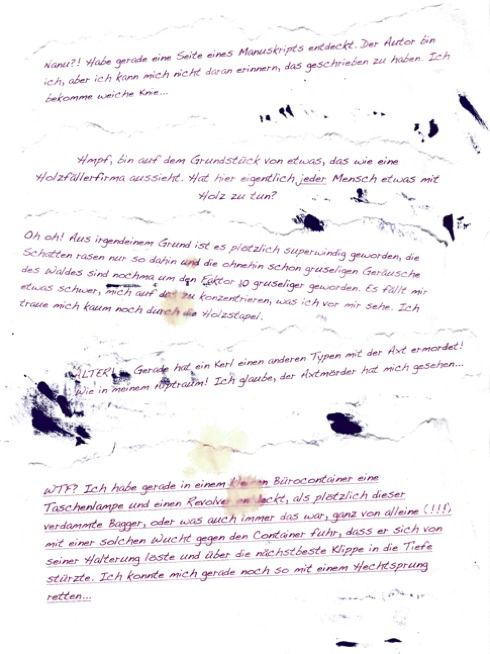 Nanu?! Habe gerade eine Seite eines Manuskripts entdeckt. Der Autor bin
ich, aber ich kann mich nicht daran erinnern, das geschrieben zu haben. Ich
bekomme weiche Knie...
Hmpf, bin auf dem Grundstück von etwas, das wie eine
Holzfällerfirma aussieht. Hat hier eigentlich jeder Mensch etwas mit
Holz zu tun?
Oh oh! Aus irgendeinem Grund ist es plötzlich superwindig geworden, die
Schatten rasen nur so dahin und die ohnehin schon gruseligen Geräusche
des Waldes sind nochma um den Faktor 10 gruseliger geworden. Es fällt mir
etwas schwer, mich auf das zu konzentrieren, was ich vor mir sehe. Ich
traue mich kaum noch durch die Holzstapel.
ALTER! Gerade hat ein Kerl einen anderen Typen mit der Axt ermordet!
Wie in meinem Alptraum! Ich glaube, der Axtmörder hat mich gesehen...
WTF? Ich habe gerade in einem kleinen Bürocontainer eine
Taschenlampe und einen Revolver entdeckt, als plötzlich dieser
verdammte Bagger, oder was auch immer das war, ganz von alleine (!!!)
mit einer solchen Wucht gegen den Container fuhr, dass er sich von
seiner Halterung löste und über die nächstbeste Klippe in die Tiefe
stürzte. Ich konnte mich gerade noch so mit einem Hechtsprung
retten...